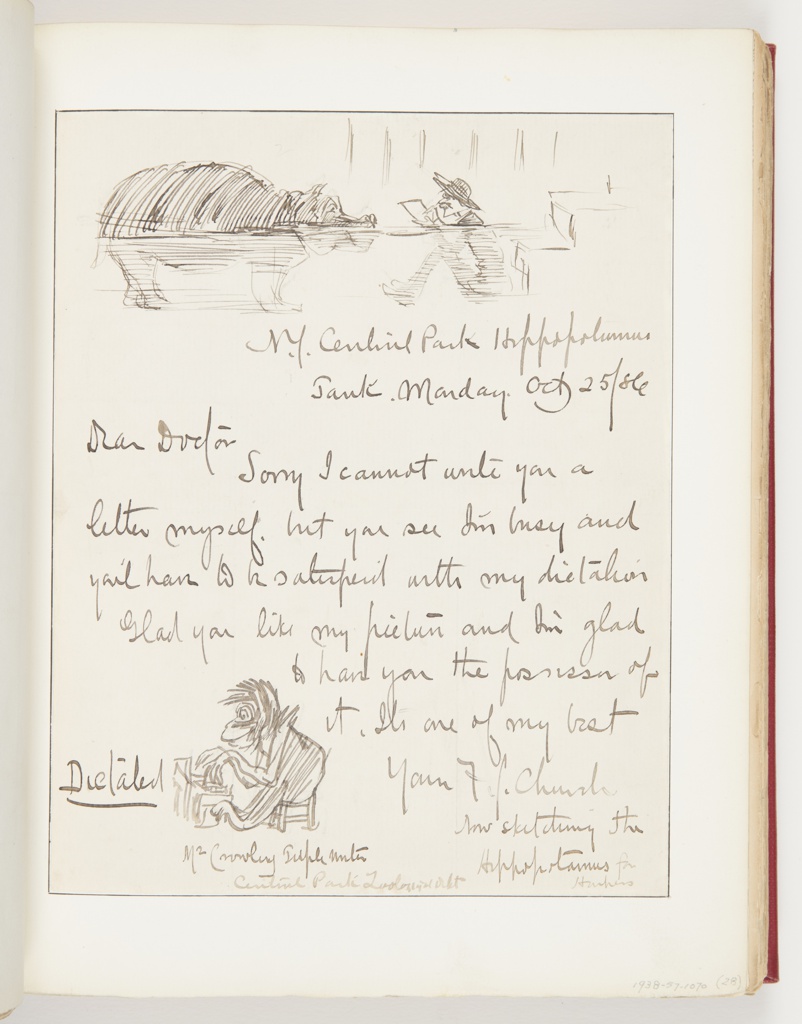 N.Y. Central Park Hippopotamus
Tank. Monday. Oct 25/86
Dear Doctor
Sorry I cannot write you a
letter myself. but you see I'm busy and
you'l have to be satisfied with my dictation
Glad you like my picture and I'm glad
to have you the possessor of
it. Its one of my best
Yours F. S. Church
Now sketching the
Hippopotamus for
Harpers
Dictated
Mr Crowley Type writer
Central Park
1938-57-1070 (28)